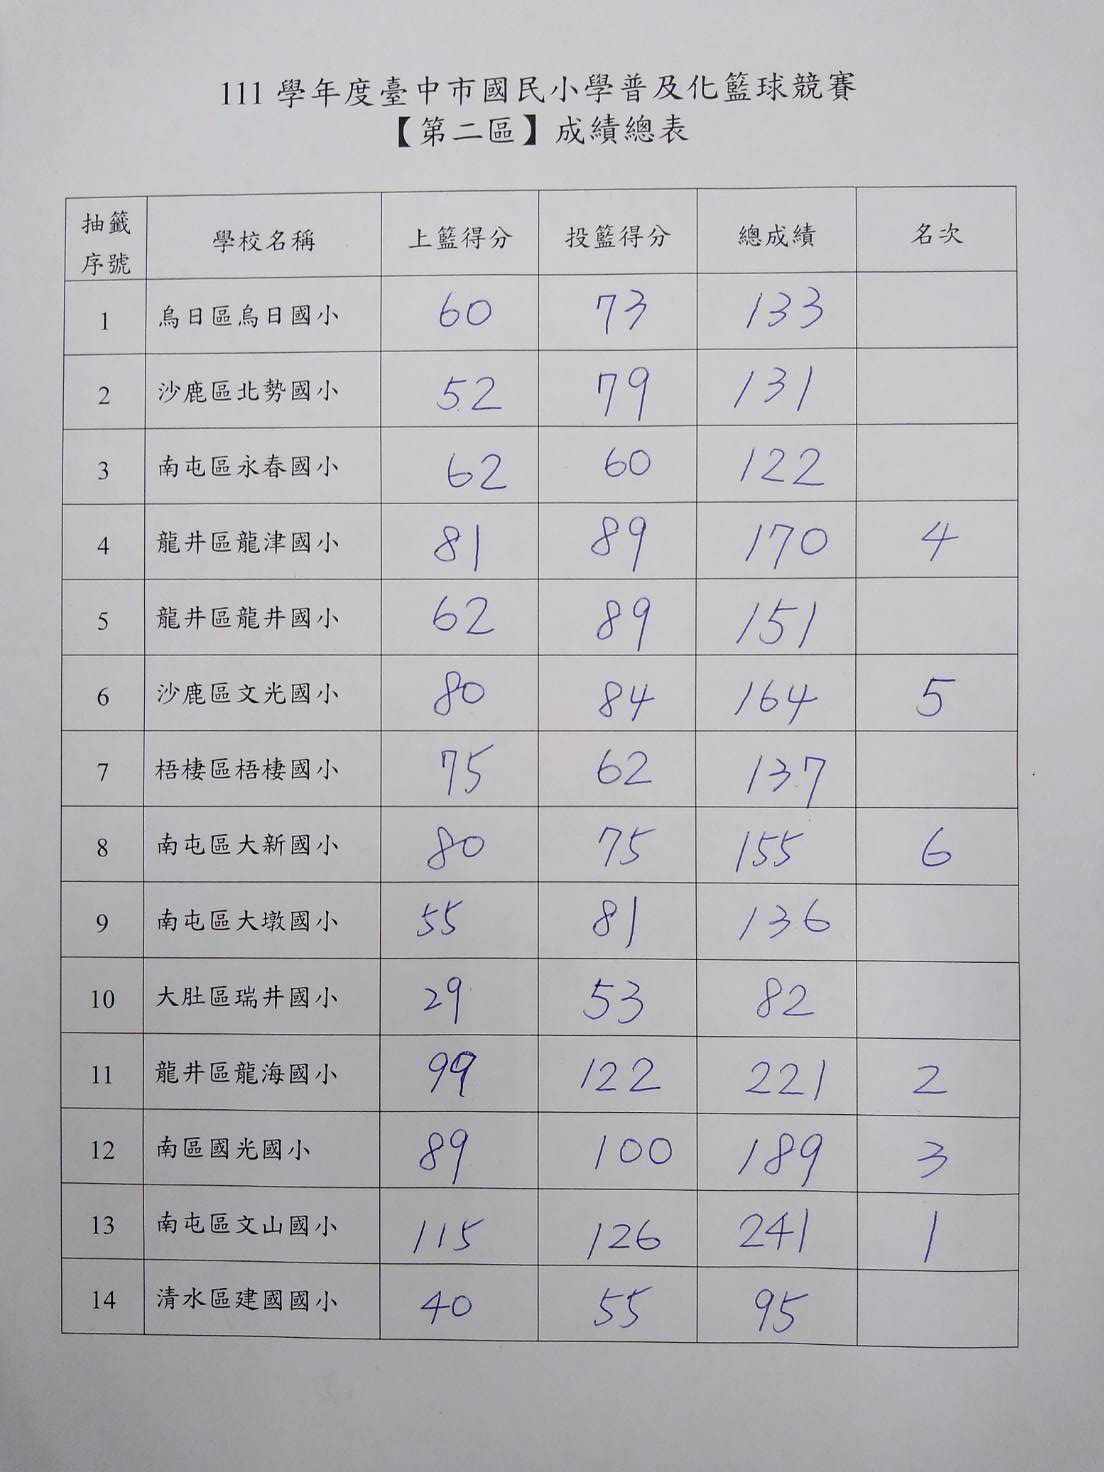 111 學年度臺中市國民小學普及化籃球競賽
【第二區】成績總表
抽籤序號 學校名稱 上籃得分 投籃得分 總成績 名次
1 烏日區烏日國小 60 73 133
2 沙鹿區北勢國小 52 79 131
3 南屯區永春國小 62 60 122
4 龍井區龍津國小 81 89 170 4
5 龍井區龍井國小 62 89 151
6 沙鹿區文光國小 80 84 164 5
7 梧棲區梧棲國小 75 62 137
8 南屯區大新國小 80 75 155 6
9 南屯區大墩國小 55 81 136
10 大肚區瑞井國小 29 53 82
11 龍井區龍海國小 99 122 221 2
12 南區國光國小 89 100 189 3
13 南屯區文山國小 115 126 241 1
14 清水區建國國小 40 55 95